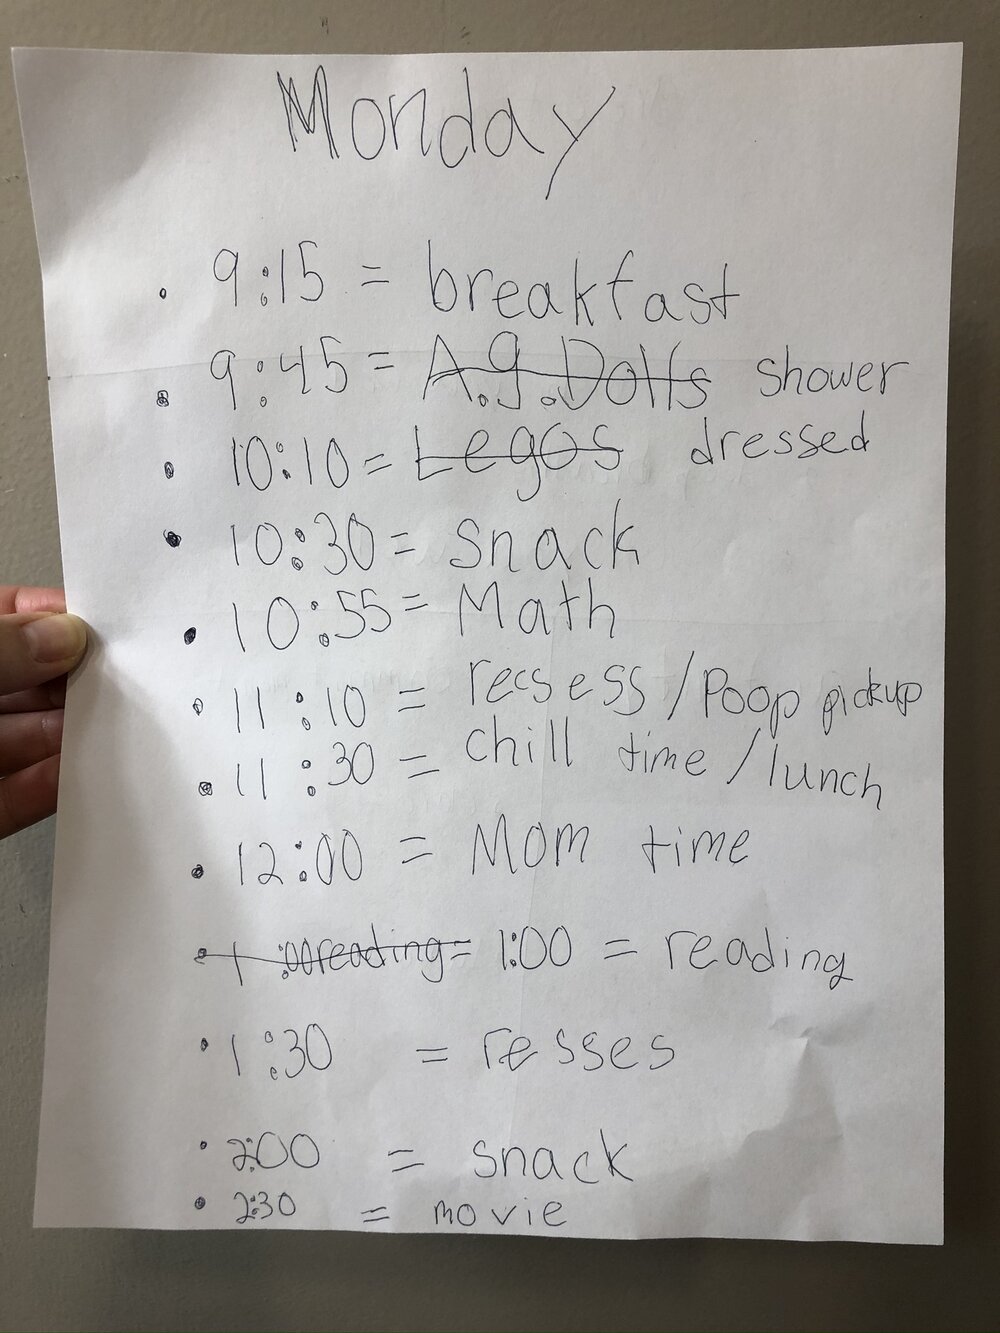 Monday
• 9:15 = breakfast
• 9:45 = A.g.Dolls shower
• 10:10 = Legos dressed
• 10:30 = snack
• 10:55 = Math
• 11:10 = recsess / Poop pickup
• 11:30 = chill time / lunch
• 12:00 = Mom time
• 1:00 reading = 1:00 = reading
• 1:30 = resses
• 2:00 = snack
• 2:30 = movie